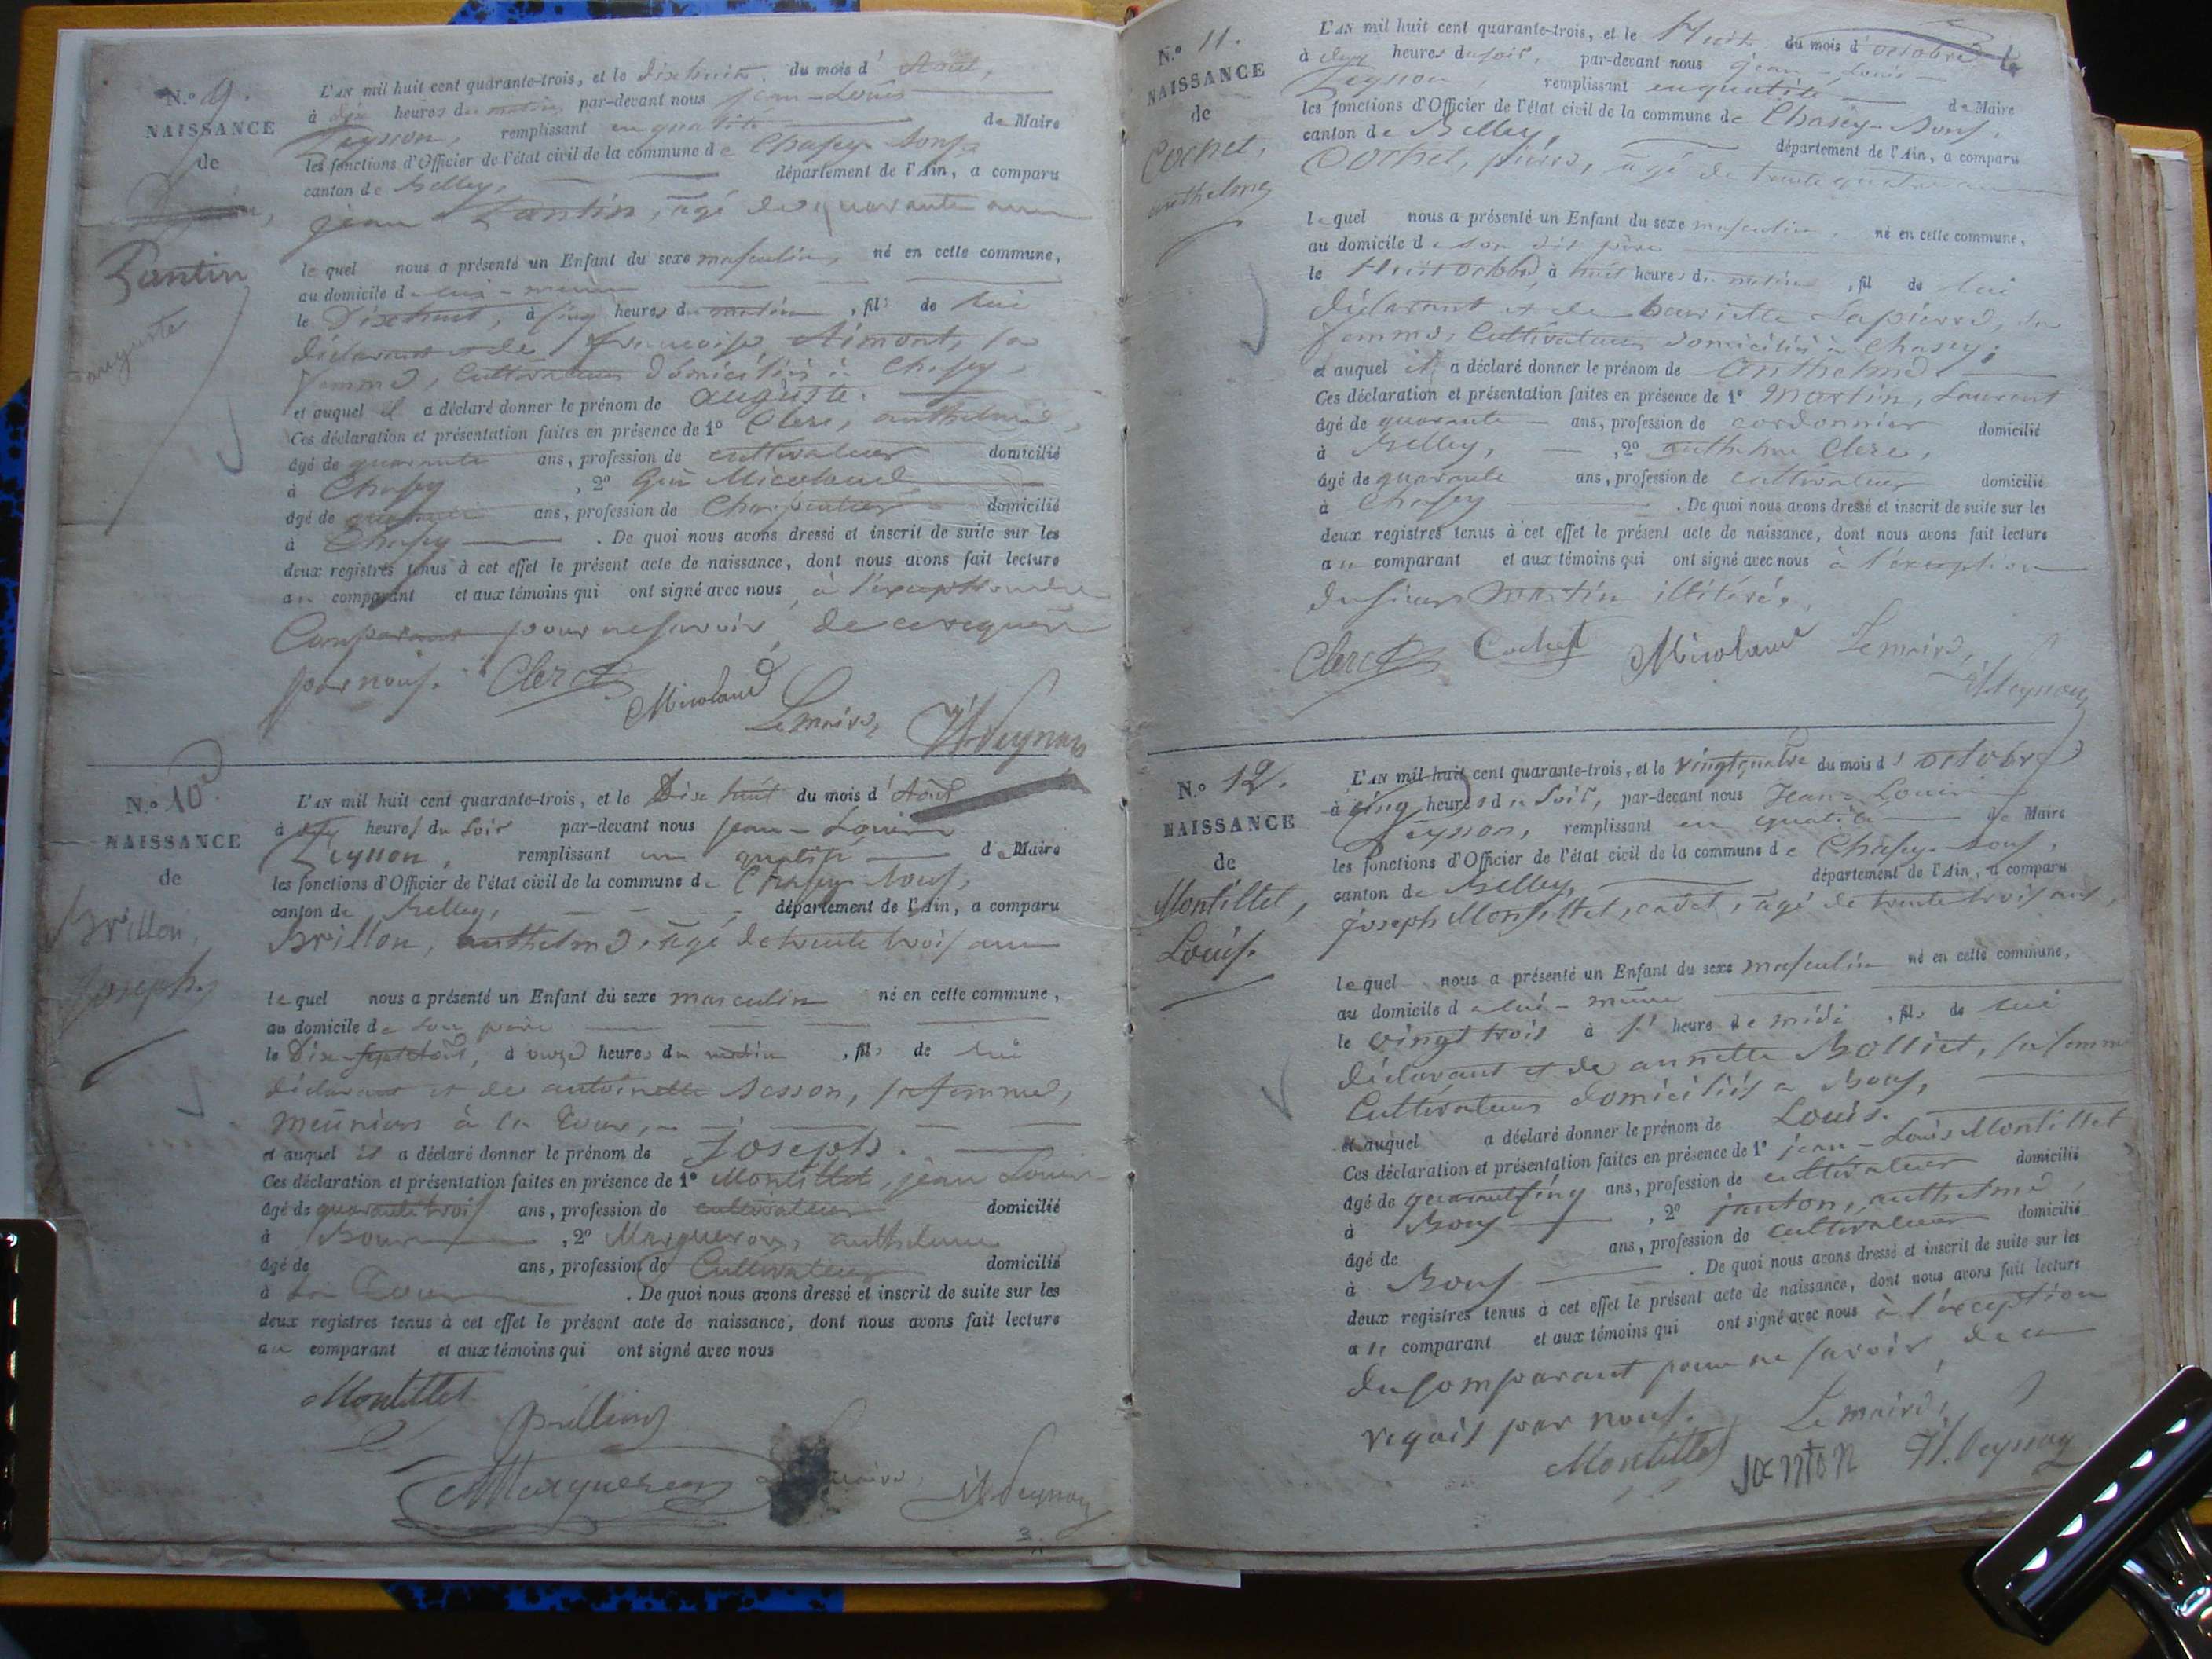 N.º 9.
NAISSANCE
de
Pantin
auguste
L'AN mil huit cent quarante-trois, et le dixhuit du mois d'Août,
à dix heures du matin par-devant nous jean-Louis
Peysson, remplissant en qualité de Maire
les fonctions d'Officier de l'état civil de la commune de Chasey-Bons,
canton de Belley, département de l'Ain, a comparu
jean Pantin, âgé de quarante ans
lequel nous a présenté un Enfant du sexe masculin, né en cette commune,
au domicile de lui-même
le Dixhuit, à cinq heures du matin, fils de lui
déclarant et de françoise Aimont, sa
femme, Cultivateurs domiciliés à Chasey,
et auquel il a déclaré donner le prénom de auguste.
Ces déclaration et présentation faites en présence de 1º Clerc, anthelme,
âgé de quarante ans, profession de cultivateur domicilié
à Chasey, 2º Micoloud
âgé de quarante ans, profession de Charpentier domicilié
à Chasey. De quoi nous avons dressé et inscrit de suite sur les
deux registres tenus à cet effet le présent acte de naissance, dont nous avons fait lecture
au comparant et aux témoins qui ont signé avec nous à l'exception du
Comparant pour ne savoir, de ce requis
par nous. Clerc
Micoloud
Le maire,
Peysson
N.º 10
NAISSANCE
de
Brillon,
Joseph,
L'AN mil huit cent quarante-trois, et le Dixhuit du mois d'Août
à heures du soir par-devant nous jean-Louis
Peysson, remplissant en qualité de Maire
les fonctions d'Officier de l'état civil de la commune de Chasey Bons,
canton de Belley, département de l'Ain, a comparu
Brillon, anthelme, âgé de trente trois ans
lequel nous a présenté un Enfant du sexe masculin né en cette commune,
au domicile de son père
le Dix-sept Août, à onze heures du matin, fils de lui
déclarant et de antoinette Sesson, sa femme,
meûniers à la Cour,
et auquel il a déclaré donner le prénom de Joseph.
Ces déclaration et présentation faites en présence de 1º Montillet, jean Louis
âgé de quarante trois ans, profession de cultivateur domicilié
à Bons, 2º Marqueron, anthelme
âgé de ans, profession de Cultivateur domicilié
à la Cour. De quoi nous avons dressé et inscrit de suite sur les
deux registres tenus à cet effet le présent acte de naissance, dont nous avons fait lecture
au comparant et aux témoins qui ont signé avec nous
Montillet
Brillon
Marqueron
Peysson
3.
N.º 11.
NAISSANCE
de
Cochet,
anthelme
L'AN mil huit cent quarante-trois, et le Huit du mois d'octobre
à deux heures du soir, par-devant nous jean-Louis
Peysson, remplissant en qualité de Maire
les fonctions d'Officier de l'état civil de la commune de Chasey-Bons,
canton de Belley, département de l'Ain, a comparu
Cochet, pierre, âgé de trente quatre ans
lequel nous a présenté un Enfant du sexe masculin, né en cette commune,
au domicile de son dit père
le Huit octobre, à huit heures du matin, fil de lui
déclarant et de henriette Lapierre, sa
femme, Cultivateurs domiciliés à Chasey;
et auquel il a déclaré donner le prénom de Anthelme.
Ces déclaration et présentation faites en présence de 1º Martin, Laurent
âgé de quarante ans, profession de cordonnier domicilié
à Belley, 2º anthelme Clerc,
âgé de quarante ans, profession de cultivateur domicilié
à Chasey. De quoi nous avons dressé et inscrit de suite sur les
deux registres tenus à cet effet le présent acte de naissance, dont nous avons fait lecture
au comparant et aux témoins qui ont signé avec nous à l'exception
du sieur Martin illitéré.
Clerc Cochet Micoloud Le maire,
Peysson
N.º 12.
NAISSANCE
de
Montillet,
Louis.
L'AN mil huit cent quarante-trois, et le vingtquatre du mois d'octobre
à cinq heures du soir, par-devant nous Jean-Louis
Peysson, remplissant en qualité de Maire
les fonctions d'Officier de l'état civil de la commune de Chasey-Bons,
canton de Belley, département de l'Ain, a comparu
Joseph Montillet, cadet, âgé de trente trois ans,
lequel nous a présenté un Enfant du sexe masculin né en cette commune,
au domicile de lui-même
le vingt trois à l' heure de midi, fils de lui
déclarant et de annette Bolliet, sa femme
Cultivateurs domiciliés à Bons,
et auquel a déclaré donner le prénom de Louis.
Ces déclaration et présentation faites en présence de 1º jean-Louis Montillet
âgé de quarante cinq ans, profession de cultivateur domicilié
à Bons, 2º janton, anthelme,
âgé de ans, profession de cultivateur domicilié
à Bons. De quoi nous avons dressé et inscrit de suite sur les
deux registres tenus à cet effet le présent acte de naissance, dont nous avons fait lecture
au comparant et aux témoins qui ont signé avec nous à l'exception
du comparant pour ne savoir, de ce
requis par nous. Le maire,
Montillet janton Peysson